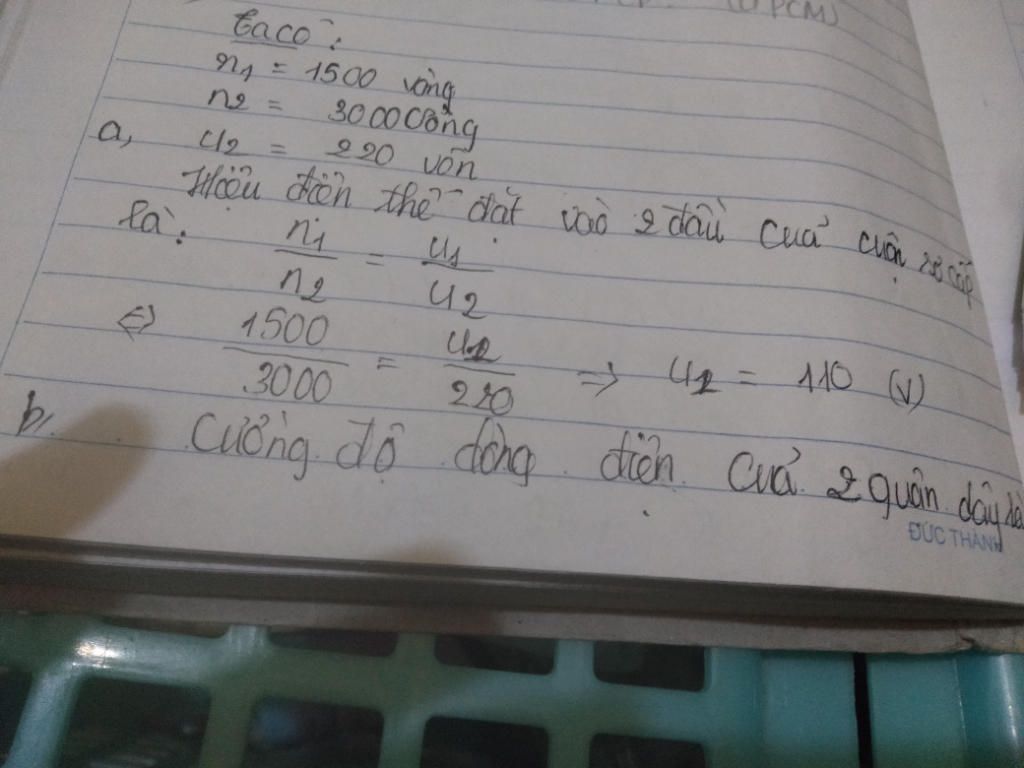 (ĐPCM)
ta có:
n1 = 1500 vòng
n2 = 3000 vòng
a, u2 = 220 vôn
Hiệu điện thế đặt vào 2 đầu của cuộn sơ cấp
là: n1/n2 = u1/u2
<=> 1500/3000 = u1/220 => u1 = 110 (V)
b, Cường độ dòng điện của 2 quận dây là
ĐỨC THÀNH